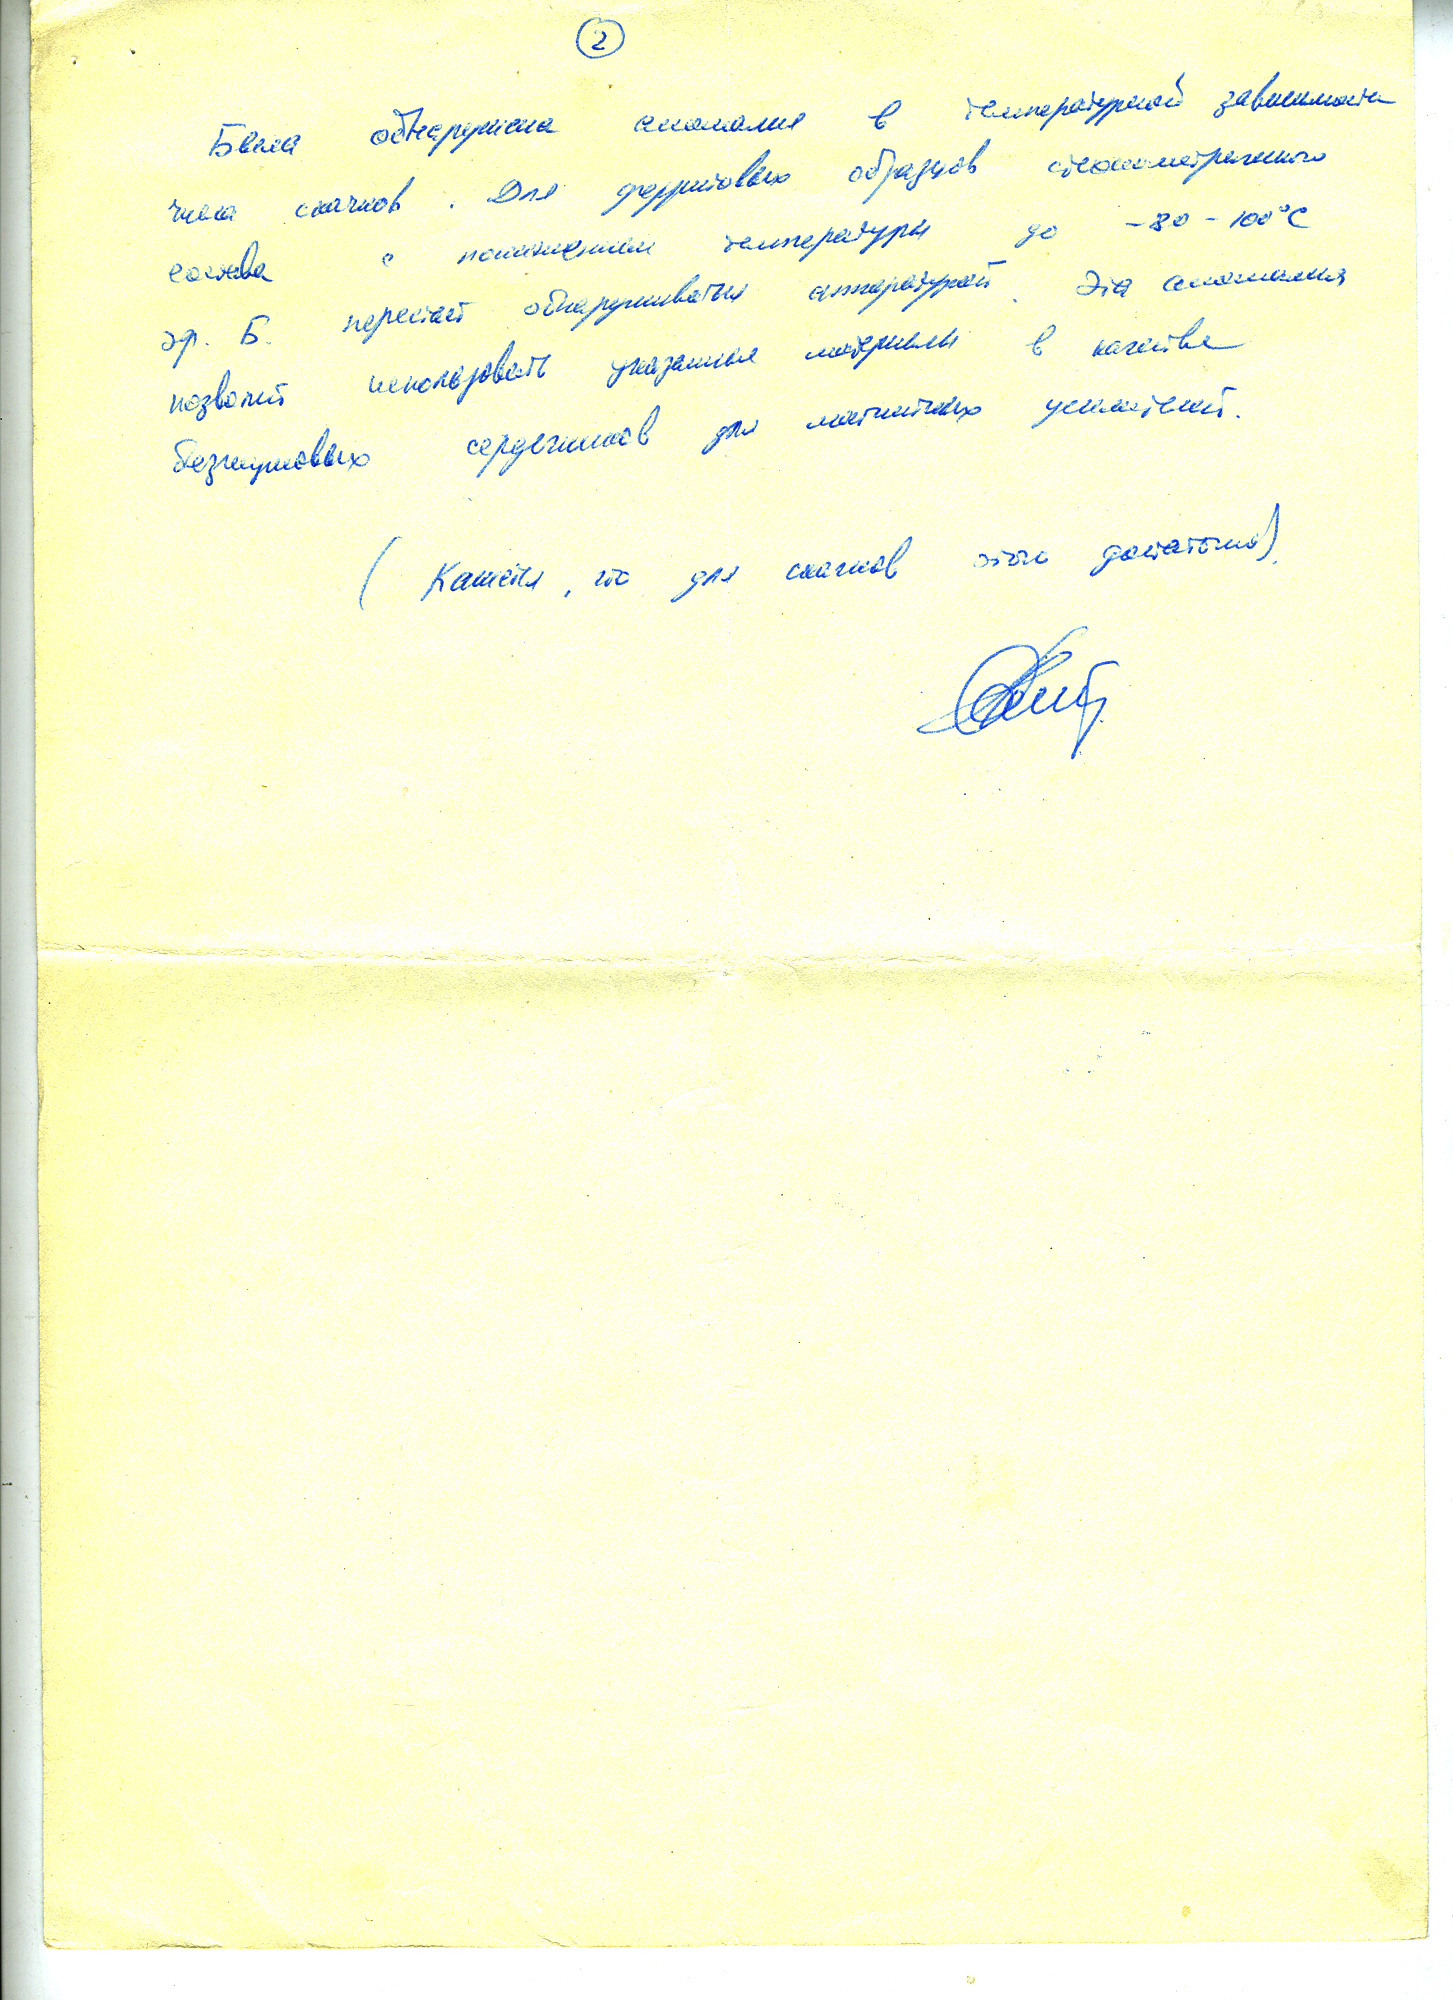 2
Была обнаружена аномалия в температурной зависимости
числа скачков. Для ферритовых образцов стехиометрического
состава с понижением температуры до -80 - 100°C
эф. Б. перестает обнаруживаться аппаратурой. Эта аномалия
позволит использовать указанные материалы в качестве
безшумовых сердечников для магнитных усилителей.
(Кажется, что для скачков этого достаточно).